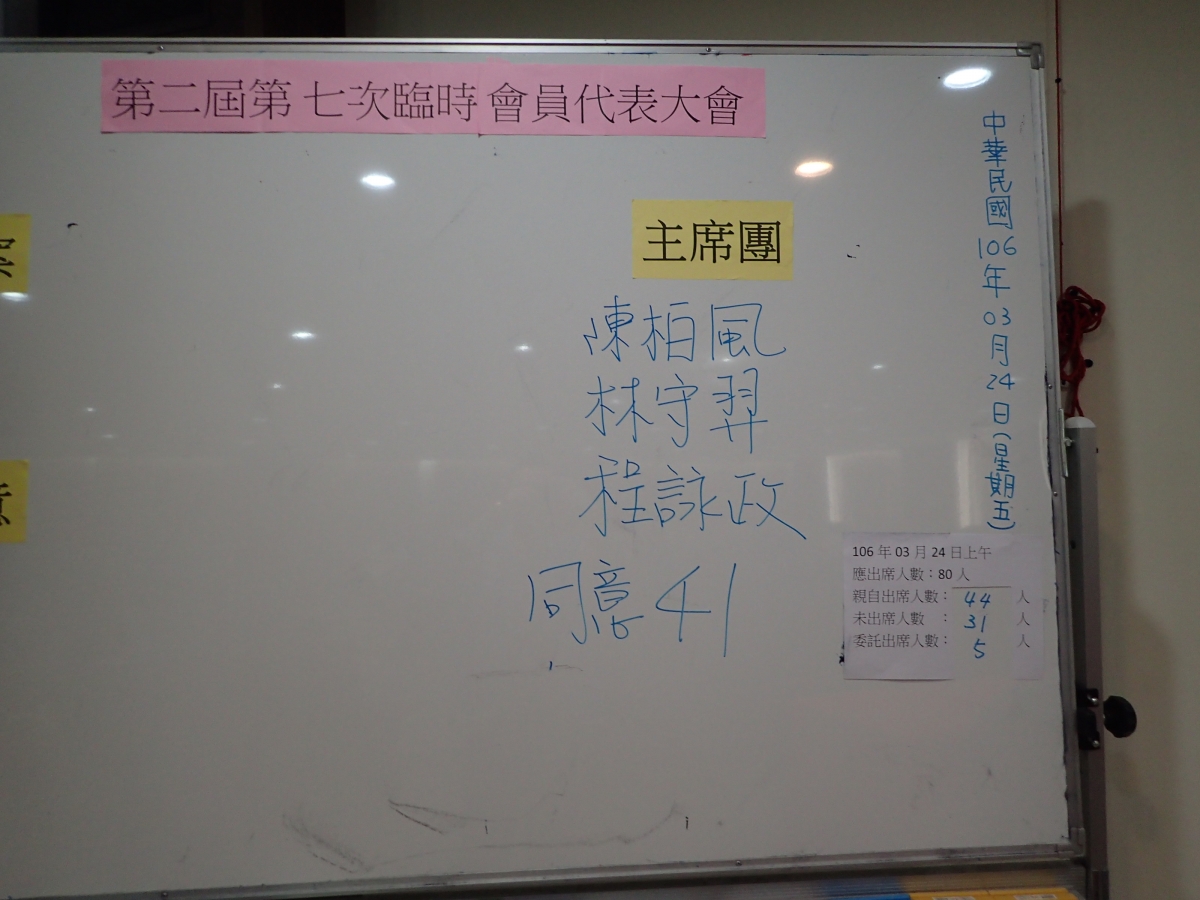 第二屆第七次臨時會員代表大會
中華民國106年03月24日(星期五)
主席團
陳柏風
林守羿
程詠政
同意41
106年03月24日上午
應出席人數：80人
親自出席人數：44人
未出席人數：31人
委託出席人數：5人